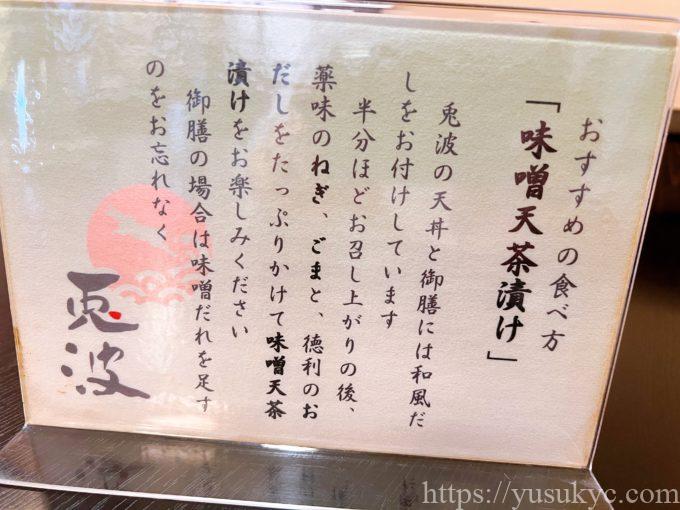 おすすめの食べ方
「味噌天茶漬け」
兎波の天丼と御膳には和風だ
しをお付けしています
半分ほどお召し上がりの後、
薬味のねぎ、ごまと、徳利のお
だしをたっぷりかけて味噌天茶
漬けをお楽しみください
御膳の場合は味噌だれを足す
のをお忘れなく
兎波
https://yusukyc.com